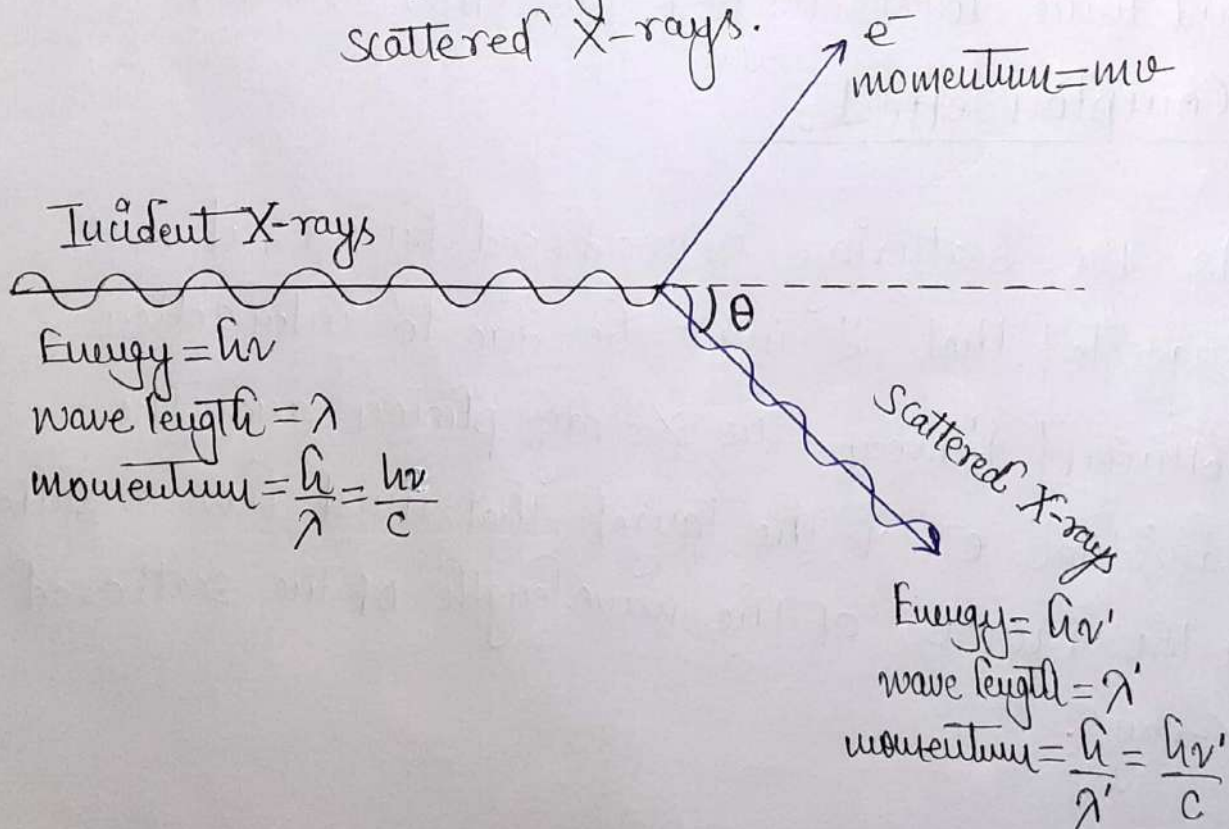 scattered X-rays.
e⁻
momentum=mv
Incident X-rays
θ
Energy = hν
wave length = λ
momentum = h/λ = hν/c
Scattered X-rays
Energy = hν'
wave length = λ'
momentum = h/λ' = hν'/c